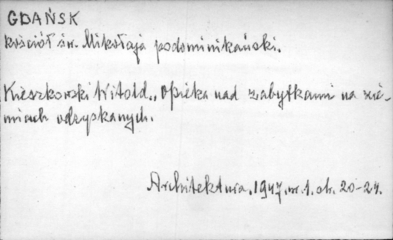 GDAŃSK
kościół św. Mikołaja podominikański.
Kieszkowski Witold., Opieka nad zabytkami na zie-
miach odzyskanych.
Architektura, 1947, nr. 1. str. 20-24.